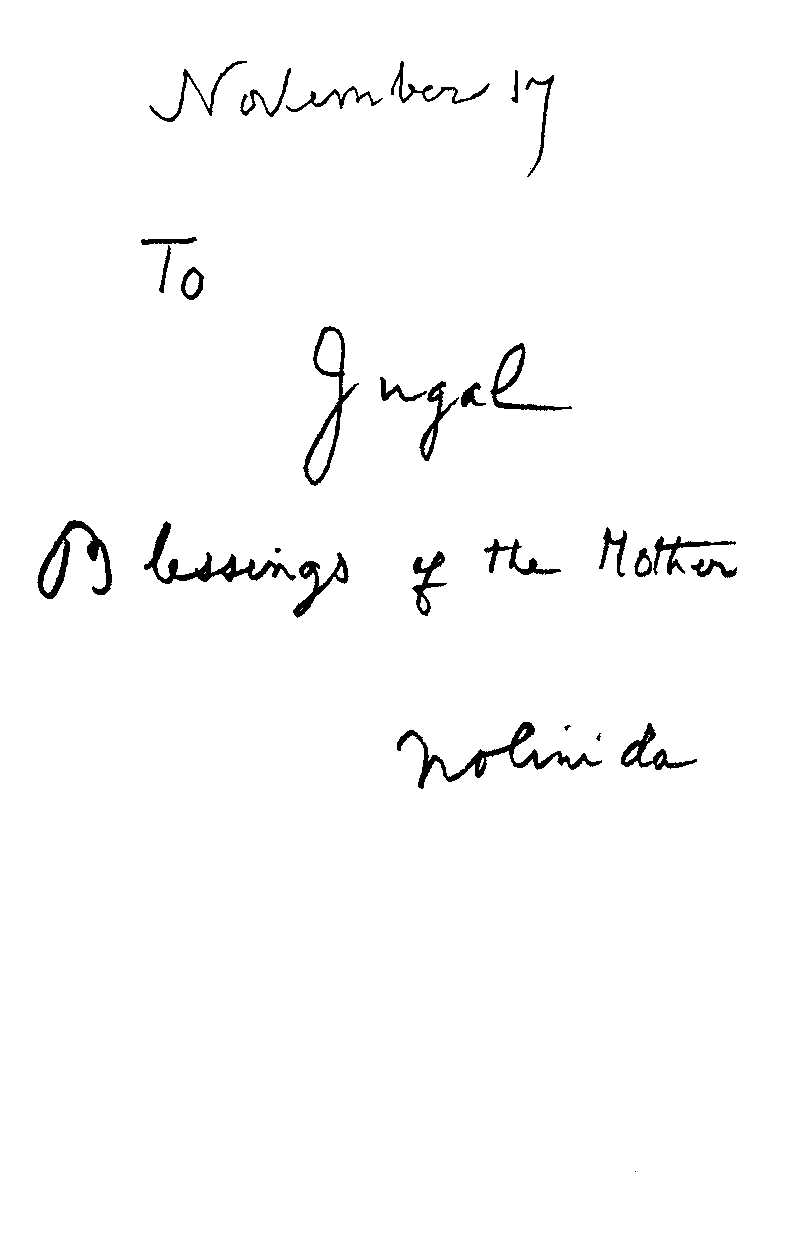 November 17
To
Jugal
Blessings of the Mother
Nolini da